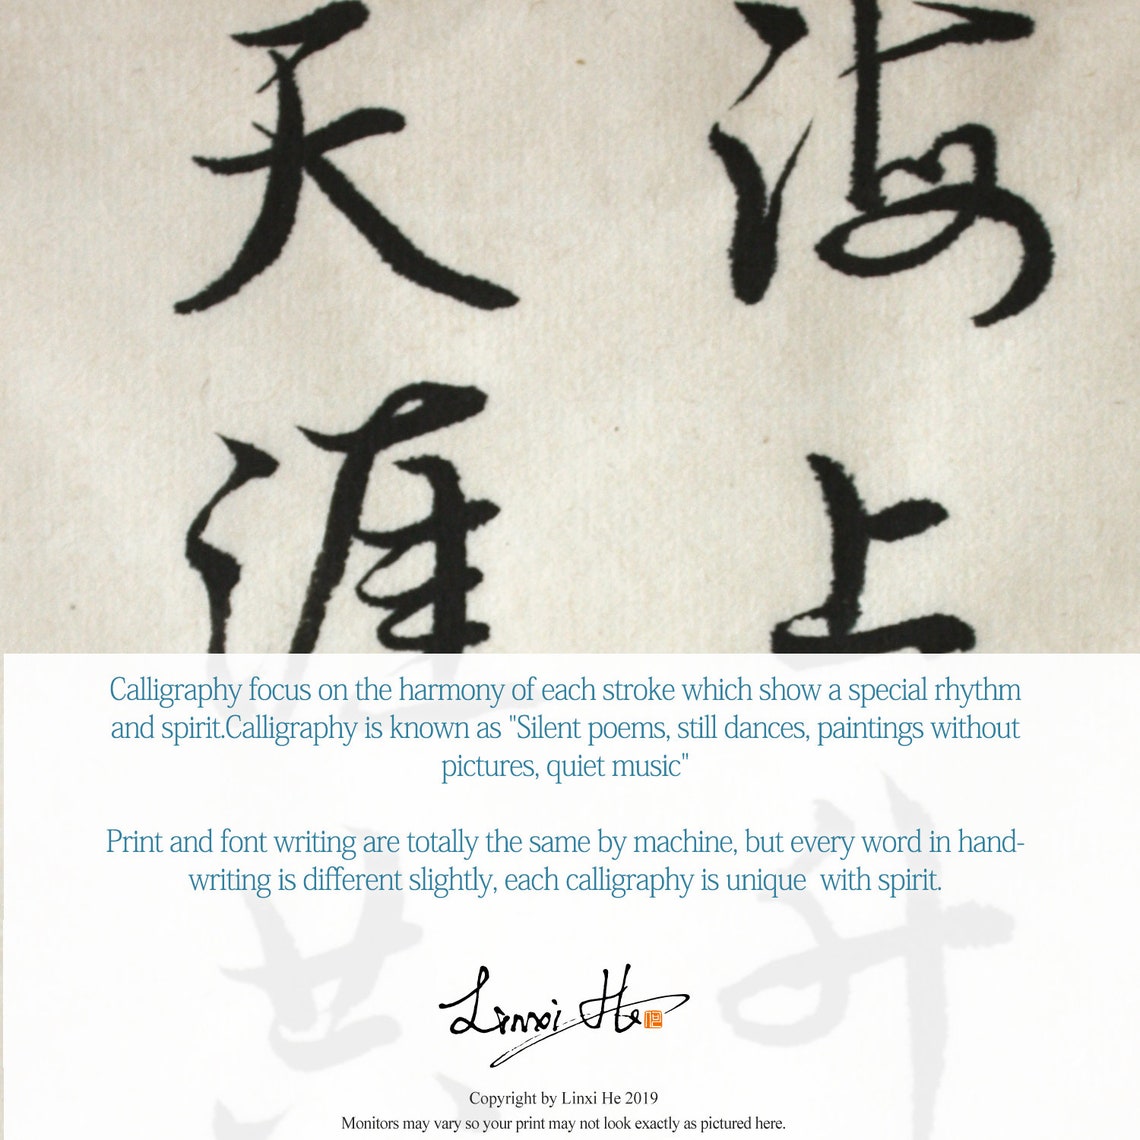 海上升
天涯共
Calligraphy focus on the harmony of each stroke which show a special rhythm
and spirit.Calligraphy is known as "Silent poems, still dances, paintings without
pictures, quiet music"
Print and font writing are totally the same by machine, but every word in hand-
writing is different slightly, each calligraphy is unique  with spirit.
Linxi He
Copyright by Linxi He 2019
Monitors may vary so your print may not look exactly as pictured here.